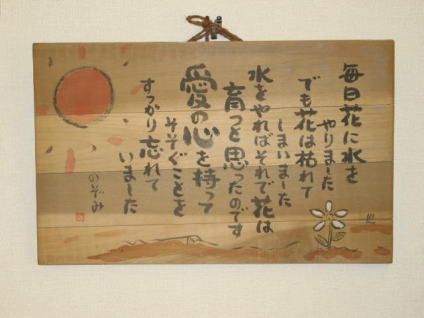 毎日花に水を
やりました
でも花は枯れて
しまいました
水をやればそれで花は
育つと思ったのです
愛の心を持って
そそぐことを
すっかり忘れて
いました
のぞみ